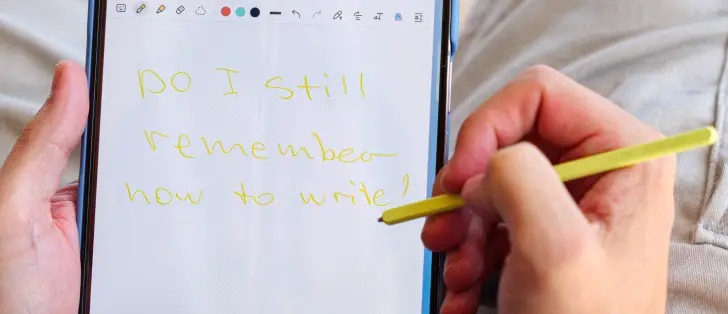 Do I still
remember
how to write?